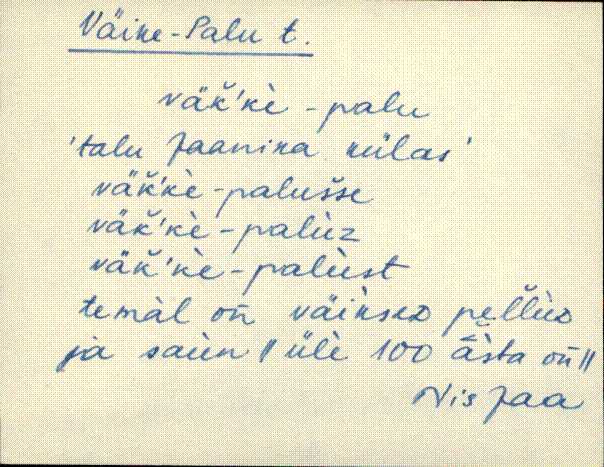 Väike-Palu t.
väk̆'kè - palu
'talu Jaanika külas'
väk̆'kè - palušse
väk̆'kè - palùz
väk̆'kè - palùst
temàl on̄ väiksɛD pɛĺ̆lùD
ja saùn ‖ ülè 100 āsta on̄ ‖
Nis Jaa